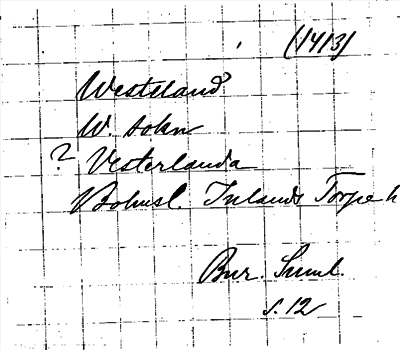 (1413)
Westeland
W. sokn
? Vesterlanda
Bohusl. Inlands Torpe h
Bur. Suml.
s. 12